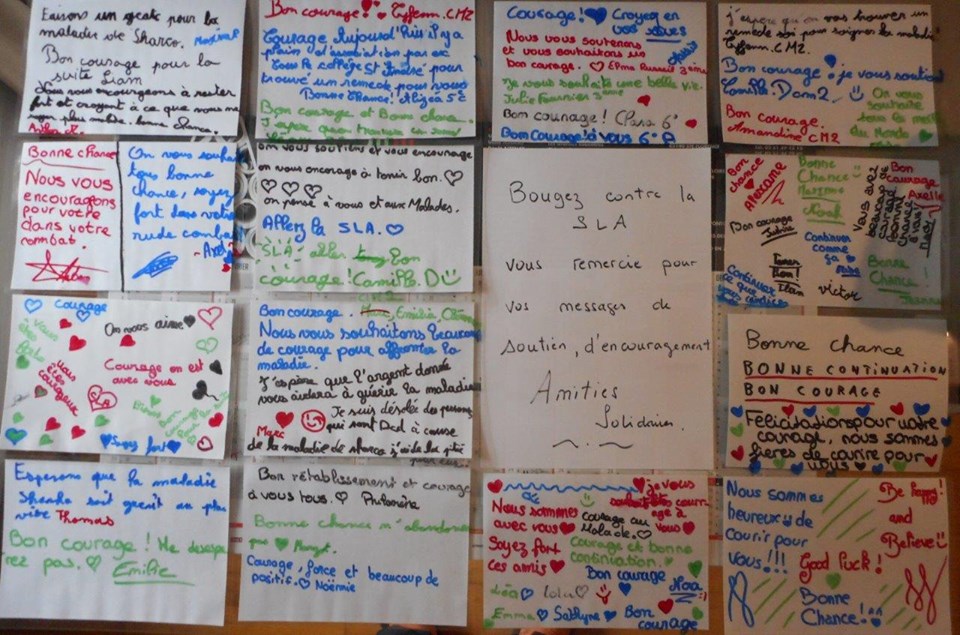 Faisons un geste pour la
maladie de Sharco.
Bon courage pour la
suite Liam
Nous vous encourageons à rester
fort et croyont à ce que vous ne
plus malade. bonne chance.
Bon courage! Tyfenn. CM2
Courage Aujourd'hui il y a
plein d'association par ex
tout le collège St André pour
trouvé un remede pour vous
Bonne chance! Alizéa 5e
Bon courage et Bonne chance.
Courage! Croyez en
vos rêves
Nous vous soutenons
et vous souhaitons un
bon courage.
Je vous souhaite une belle vie.
Julie Fournier 3eme
Bon courage! Clara 6e
Bon courage à vous 6e A
j'espère qu'on vas trouver un
remede soi pour soigner la maladie
Tyfenn. CM2.
Bon courage! je vous soutien
Camille. Dom2
On vous
souhaite
tous la mer
du Monde
Bon courage.
Amandine CM2
Bonne chance
Nous vous
encourageons
pour votre
dans votre
combat.
On vous souhai
tous bonne
chance, soyez
fort dans votre
rude combat
Axel
on vous soutiens et vous encourage
on vous encorage à tenir bon. ♡
♡ ♡ ♡ ♡
on pense à vous et aux Malades.
Allez la SLA. ♡
SLA allez
courage! Camille D
Bougez contre la
SLA
vous remercie pour
vos messages de
soutien, d'encouragement
Amitiés
Solidaires.
Bon
chance
Alexame
Bonne
Chance
Noah
Bon
courage
Axelle
Bon courage
Julie
Continuez
comme
ça
Tenez
bon!
Ilan
Victor
Continuez
ce que
vous
Bonne
Chance!
Courage
On vous aime ♥
vous
êtes
fort
Courage on est
avec vous.
vous
êtes
courageux
SLA
Soyez fort
Bon courage. Emilie
Nous vous souhaitons beaucoup
de courage pour affronter la
maladie.
J'espère que l'argent donné
vous aidera à guérir la maladie
Marc
Je suis désolée des personnes
qui sont Dcd à cause
de la maladie de sharco
Bonne chance
BONNE CONTINUATION
BON COURAGE
Félicitations pour votre
courage, nous sommes
fières de courire pour
vous
Esperons que la maladie
Sharko soit guerit au plus
vite Thomas
Bon courage! Ne desespe
rez pas. ♡ Emilie
Bon rétablissement et courage
à vous tous. ♡ Philomène
Bonne chance n'abandonne
pas ♥ Margot.
Courage, force et beaucoup de
positif. ♡ Noëmie
Nous sommes
avec vous ♥
Soyez fort
ces amis ♥
je vous
souhaite cour
age à
vous
courage au
Malade. ♡
Courage et bonne
continuation.
Bon courage
Noa
Léa ♡ Lola ♡
Emma ♥ Sablyne ♥ Bon
courage
Nous sommes
heureux de
courir pour
vous!!!
Be happy!
and
Believe
Good luck!
Bonne
Chance!